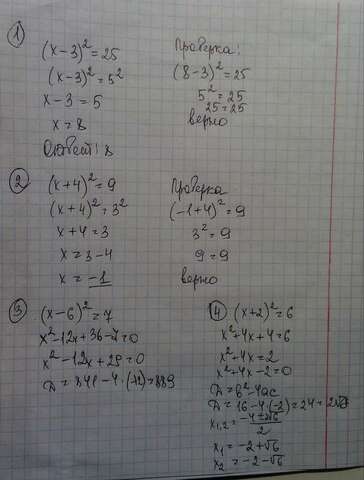 1
(x-3)²=25
(x-3)²=5²
x-3=5
x=8
Ответ: 8
Проверка:
(8-3)²=25
5²=25
25=25
верно
2
(x+4)²=9
(x+4)²=3²
x+4=3
x=3-4
x=-1
Проверка
(-1+4)²=9
3²=9
9=9
верно
3
(x-6)²=7
x²-12x+36-7=0
x²-12x+29=0
D=841-4·(-12)=889
4
(x+2)²=6
x²+4x+4=6
x²+4x=2
x²+4x-2=0
D=b²-4ac
D=16-4·(-2)=24=2√6
x1,2=-4±2√6/2
x1=-2+√6
x2=-2-√6